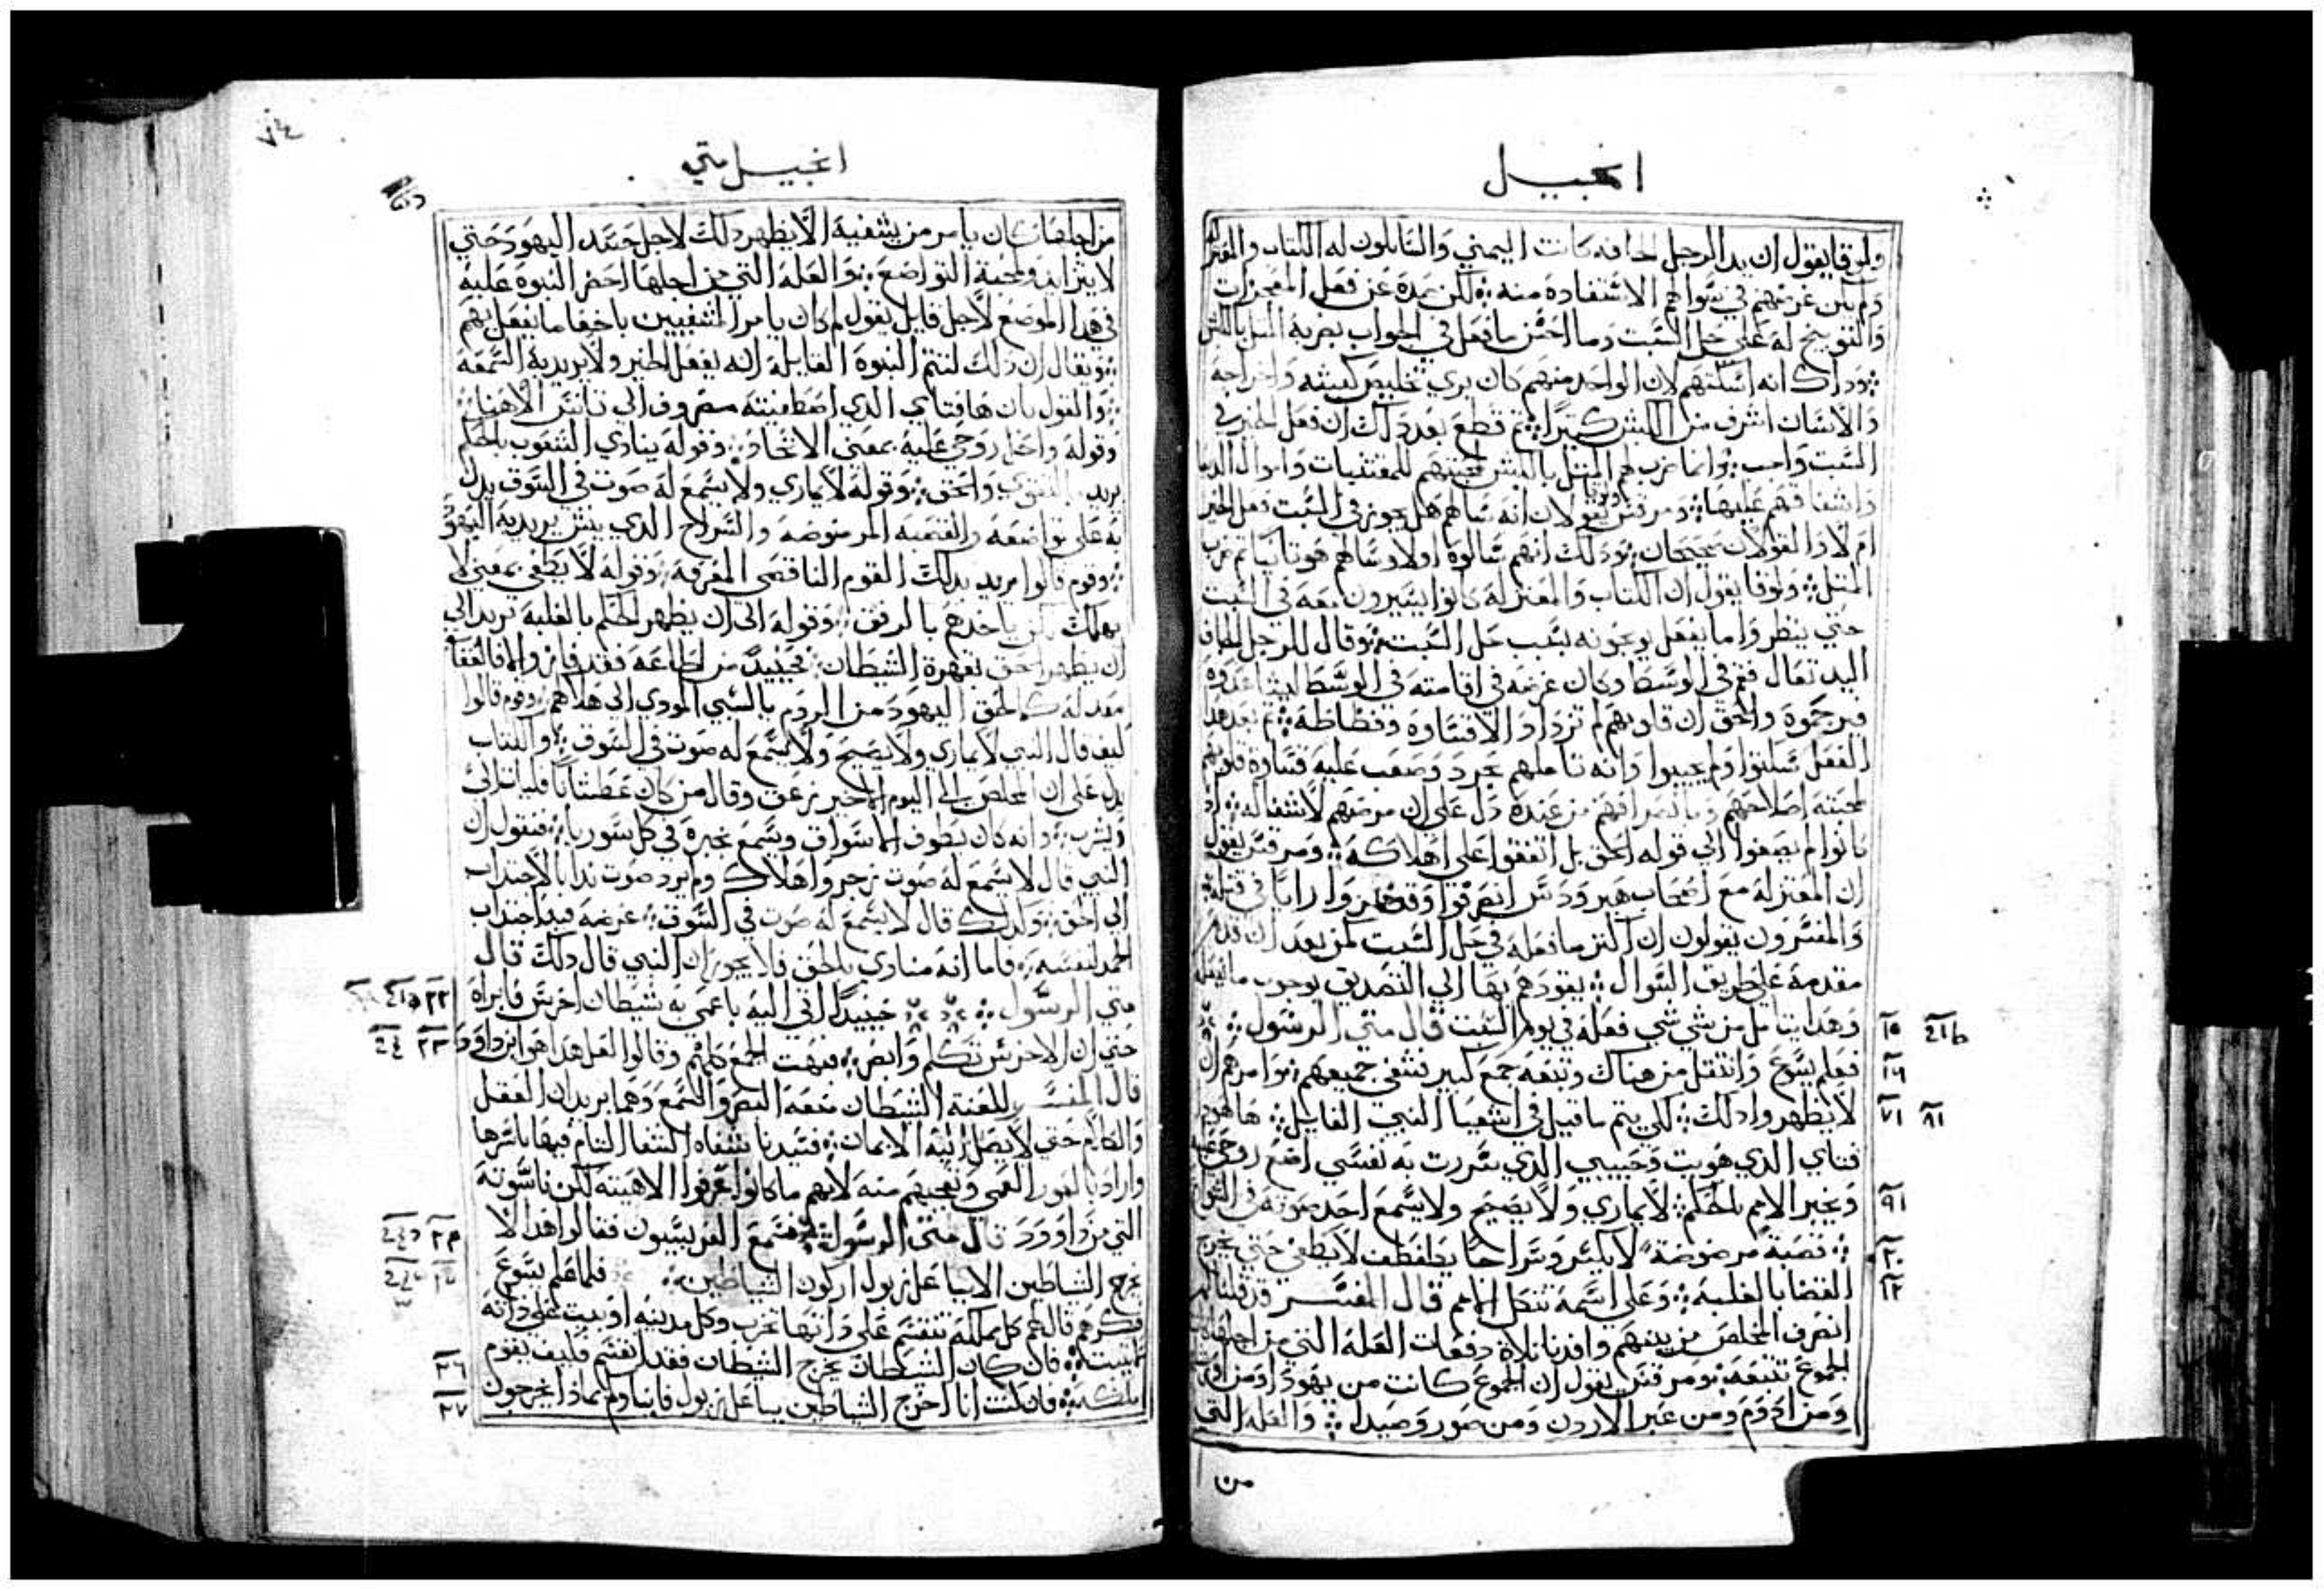 انجيل
ولوقا يقول ان يد الرجل الجافه كانت اليمني والسايلون له الكتاب والمعتزله
ولم يكن غرضهم في سوالهم الاستفادة منه لكن صده عن فعل المعجزات
والتوبيخ له علي حل السبت وما احسن ما فعل في الجواب بضربه المثل بالكبش
وذاك انه اسكتهم لان الواحد منهم كان يري تخليص كبشه واخراجه
والانسان اشرف من الكبش كثيرا ثم قطع بعد ذلك ان فعل الخير في
السبت واجب وانما ضرب لهم المثل بالكبش لمحبتهم للمقتنيات واموال الدنيا
واشفاقهم عليها ومرقس ولوقا يقولان انه سالهم هل يجوز في السبت فعل الخير
ام لا والقولان صحيحان وذلك انهم سالوه اولا وسالهم هو ثانيا ثم ضرب
المثل ولوقا يقول ان الكتاب والمعتزله كانوا يسيرون معه في السبت
حتي ينظروا ما يفعل يوجونه بسبب حل السبت وقال للرجل الجاف
اليد تعال قم في الوسط وكان غرضه في اقامته في الوسط ليشاهدوه
فيرحموه والحق ان قلوبهم لم تزداد الا قساوه وفظاظة ثم بعد هذا
الفعل سكتوا ولم يجيبوا وانه تاملهم بحرد وصعب عليه قساوة قلوبهم
لمحبته اصلاحهم وبانصرافهم من عنده دل علي ان مرضهم لا شفا له اذ
كانوا لم يصغوا الي قوله الحق بل اتفقوا علي اهلاكه ومرقس يقول
ان المعتزله مع اصحاب هيرودس انصرفوا وقد اراوا رايا في قتله
والمفسرون يقولون ان اكثر ما فعله في حل السبت لمن بعد ان قدم
مقدمة علي طريق السوال يقودهم بها الي التصديق بوجوب ما يفعله
وهذا يتامل من شي شي فعله في يوم السبت قال متي الرسول
فعلم يسوع وانتقل من هناك وتبعه جمع كبير فشفي جميعهم وامرهم ان
لا يظهروا ذلك لكي يتم ما قيل في اشعيا النبي القايل ها هوذا
فتاي الذي هويت وحبيبي الذي سررت به نفسي اضع روحي عليه
ويخبر الامم بالحكم لا يماري ولا يصيح ولا يسمع احد صوته في السوق
قصبة مرضوضة لا يكسر وسراجا يطفطف لا يطفي حتي يخرج
القضا بالغلبه وعلي اسمه تتكل الامم قال المفسر قد قلنا
انصرف المخلص من بينهم وافدنا ثلاة دفعات العلة التي من اجلها
الجموع تتبعه ومرقس يقول ان الجموع كانت من يهوذا ومن
ومن ادوم ومن عبر الاردن ومن صور وصيدا والعله التي
من
١٥
١٦
١٧
١٨
١٩
٢٠
٢١
انجيل متي
٧٤
من اجلها كان يامر من يشفيه الا يظهر ذلك لاجل حسد اليهود حتي
لا يثرايد ولمحبة التواضع والعلة التي من اجلها احضر النبوه عليه
في هذا الموضع لاجل قايل يقول لم كان يامر المشفيين باخفا ما يفعل بهم
ويقال ان ذلك لتتم النبوة القايلة انه يفعل الخير ولا يريد به السمعه
والقول بان ها فتاي الذي اصطفيته مصروف الي تانس الاهنا
وقوله واحل روحي عليه بمعني الاتحاد وقوله ينادي الشعوب بالحكم
يريد بالتقوي والحق وقوله لا يماري ولا يسمع له صوت في السوق يدل
به علي تواضعه والقصبه المرضوضه والسراج الذي ينش يريد به اليهود
وقوم قالوا يريد بذلك القوم الناقصي المعرفة وقوله لا يطفي بمعني لا
يهلك لكن ياخذهم بالرفق وقوله الي ان يظهر الحكم بالغلبة يريد الي
ان يظهر الحق بقهرة الشيطان فحينيذ من اطاعه فقد فاز والا فالعقاب
معد له كما لحق اليهود من الروم بالسبي المودي الي هلاكهم وقوم قالوا
كيف قال النبي لا يماري ولا يصيح ولا يسمع له صوت في السوق والكتاب
يدل علي ان المخلص الي اليوم الاخير زعق وقال من كان عطشانا فليات الي
ويشرب وانه كان يطوف الاسواق ويسمع بخبره في كل سوريا فنقول ان
النبي قال لا يسمع له صوت زجر واهلاك ولم يرد صوت ندا بالاجتذاب
الي الحق ولذلك قال لا يسمع له صوت في السوق غرضه فيه اجتذاب
الحمد لنفسه فاما انه منادي بالحق فلا يجوز ان النبي قال ذلك قال
متي الرسول حينيذ اتي اليه باعمي به شيطان اخرس فابراه
حتي ان الاخرس تكلم وابصر فبهت الجمع كلهم وقالوا لعل هذا هو ابن داوود
قال المفسر للغنة الشيطان منعه البصر والسمع وهما يريدان العقل
والكلام حتي لا يصل اليه الايمان فسيدنا شفاه الشفا التام فيها باسرها
واراد بالنور العمي وتعجبهم منه لانهم ما كانوا عرفوا الاهيته لكن ناسوته
التي من داوود قال متي الرسول فسمع الفريسيون فقالوا هذا لا
يخرج الشياطين الا بباعلزبول اركون الشياطين فلما علم يسوع
فكرهم قال لهم كل مملكة تنقسم علي ذاتها تخرب وكل مدينه او بيت علي ذاته
فان كان الشيطان يخرج الشيطان فقد انقسم فكيف يقوم
ملكه فان كنت انا اخرج الشياطين بباعلزبول فابناوكم بماذا يخرجون
٢٢
٢٣
٢٤
٢٥
٢٦
٢٧